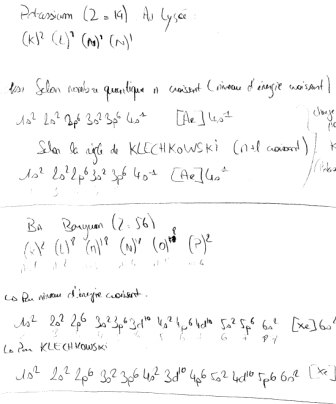 Potassium (Z = 19) Au Lycée :
(K)² (L)⁸ (M)⁸ (N)¹
Selon nombre quantique n croissant (niveau d'énergie croissant)
1s² 2s² 2p⁶ 3s² 3p⁶ 4s¹ [Ar] 4s¹
Selon la règle de KLECHKOWSKI (n+l croissant)
1s² 2s² 2p⁶ 3s² 3p⁶ 4s¹ [Ar] 4s¹
Ba Baryum (Z = 56)
(K)² (L)⁸ (M)¹⁸ (N)¹⁸ (O)⁸ (P)²
↳ Par niveau d'énergie croissant.
1s² 2s² 2p⁶ 3s² 3p⁶ 3d¹⁰ 4s² 4p⁶ 4d¹⁰ 5s² 5p⁶ 6s² [Xe] 6s²
↳ Par KLECHKOWSKI
1s² 2s² 2p⁶ 3s² 3p⁶ 4s² 3d¹⁰ 4p⁶ 5s² 4d¹⁰ 5p⁶ 6s² [Xe]